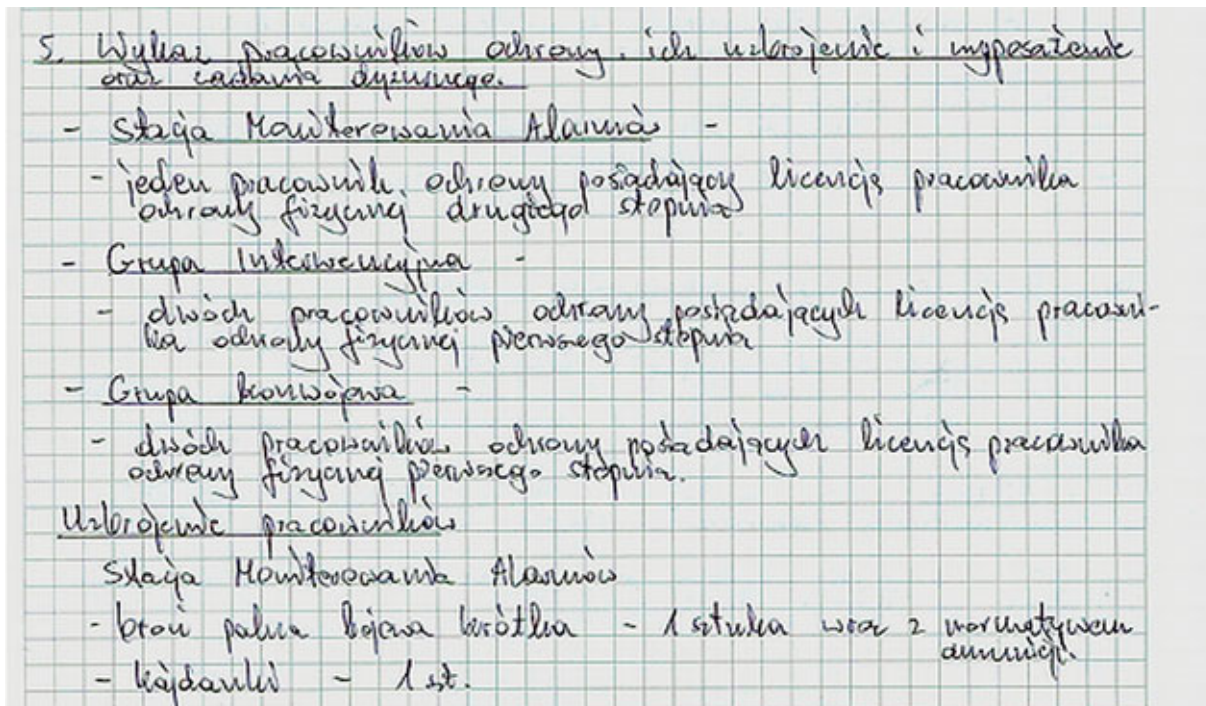 5. Wykaz pracowników ochrony, ich uzbrojenie i wyposażenie
oraz zadania dyżurnego.
- Stacja Monitorowania Alarmów -
- jeden pracownik ochrony posiadający licencję pracownika
ochrony fizycznej drugiego stopnia
- Grupa Interwencyjna -
- dwóch pracowników ochrony posiadających licencję pracowni-
ka ochrony fizycznej pierwszego stopnia
- Grupa konwojowa -
- dwóch pracowników ochrony posiadających licencję pracownika
ochrony fizycznej pierwszego stopnia.
Uzbrojenie pracowników
Stacja Monitorowania Alarmów
- broń palna bojowa krótka - 1 sztuka wraz z normatywem
amunicji.
- kajdanki - 1 szt.